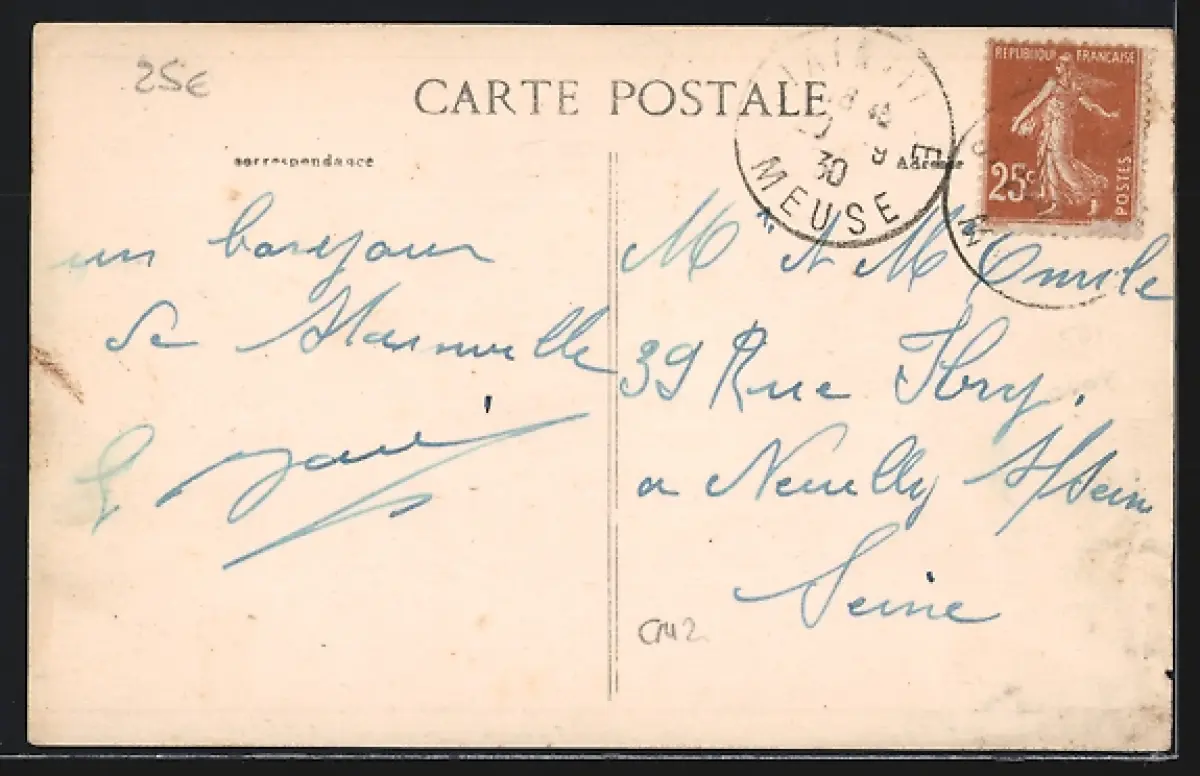 25€
CARTE POSTALE
Correspondance
Adresse
REPUBLIQUE FRANÇAISE
25c
POSTES
18
30
MEUSE
E
un bonjour
de
M et M
39 Rue
a Neuilly s/Seine
Seine
CM2